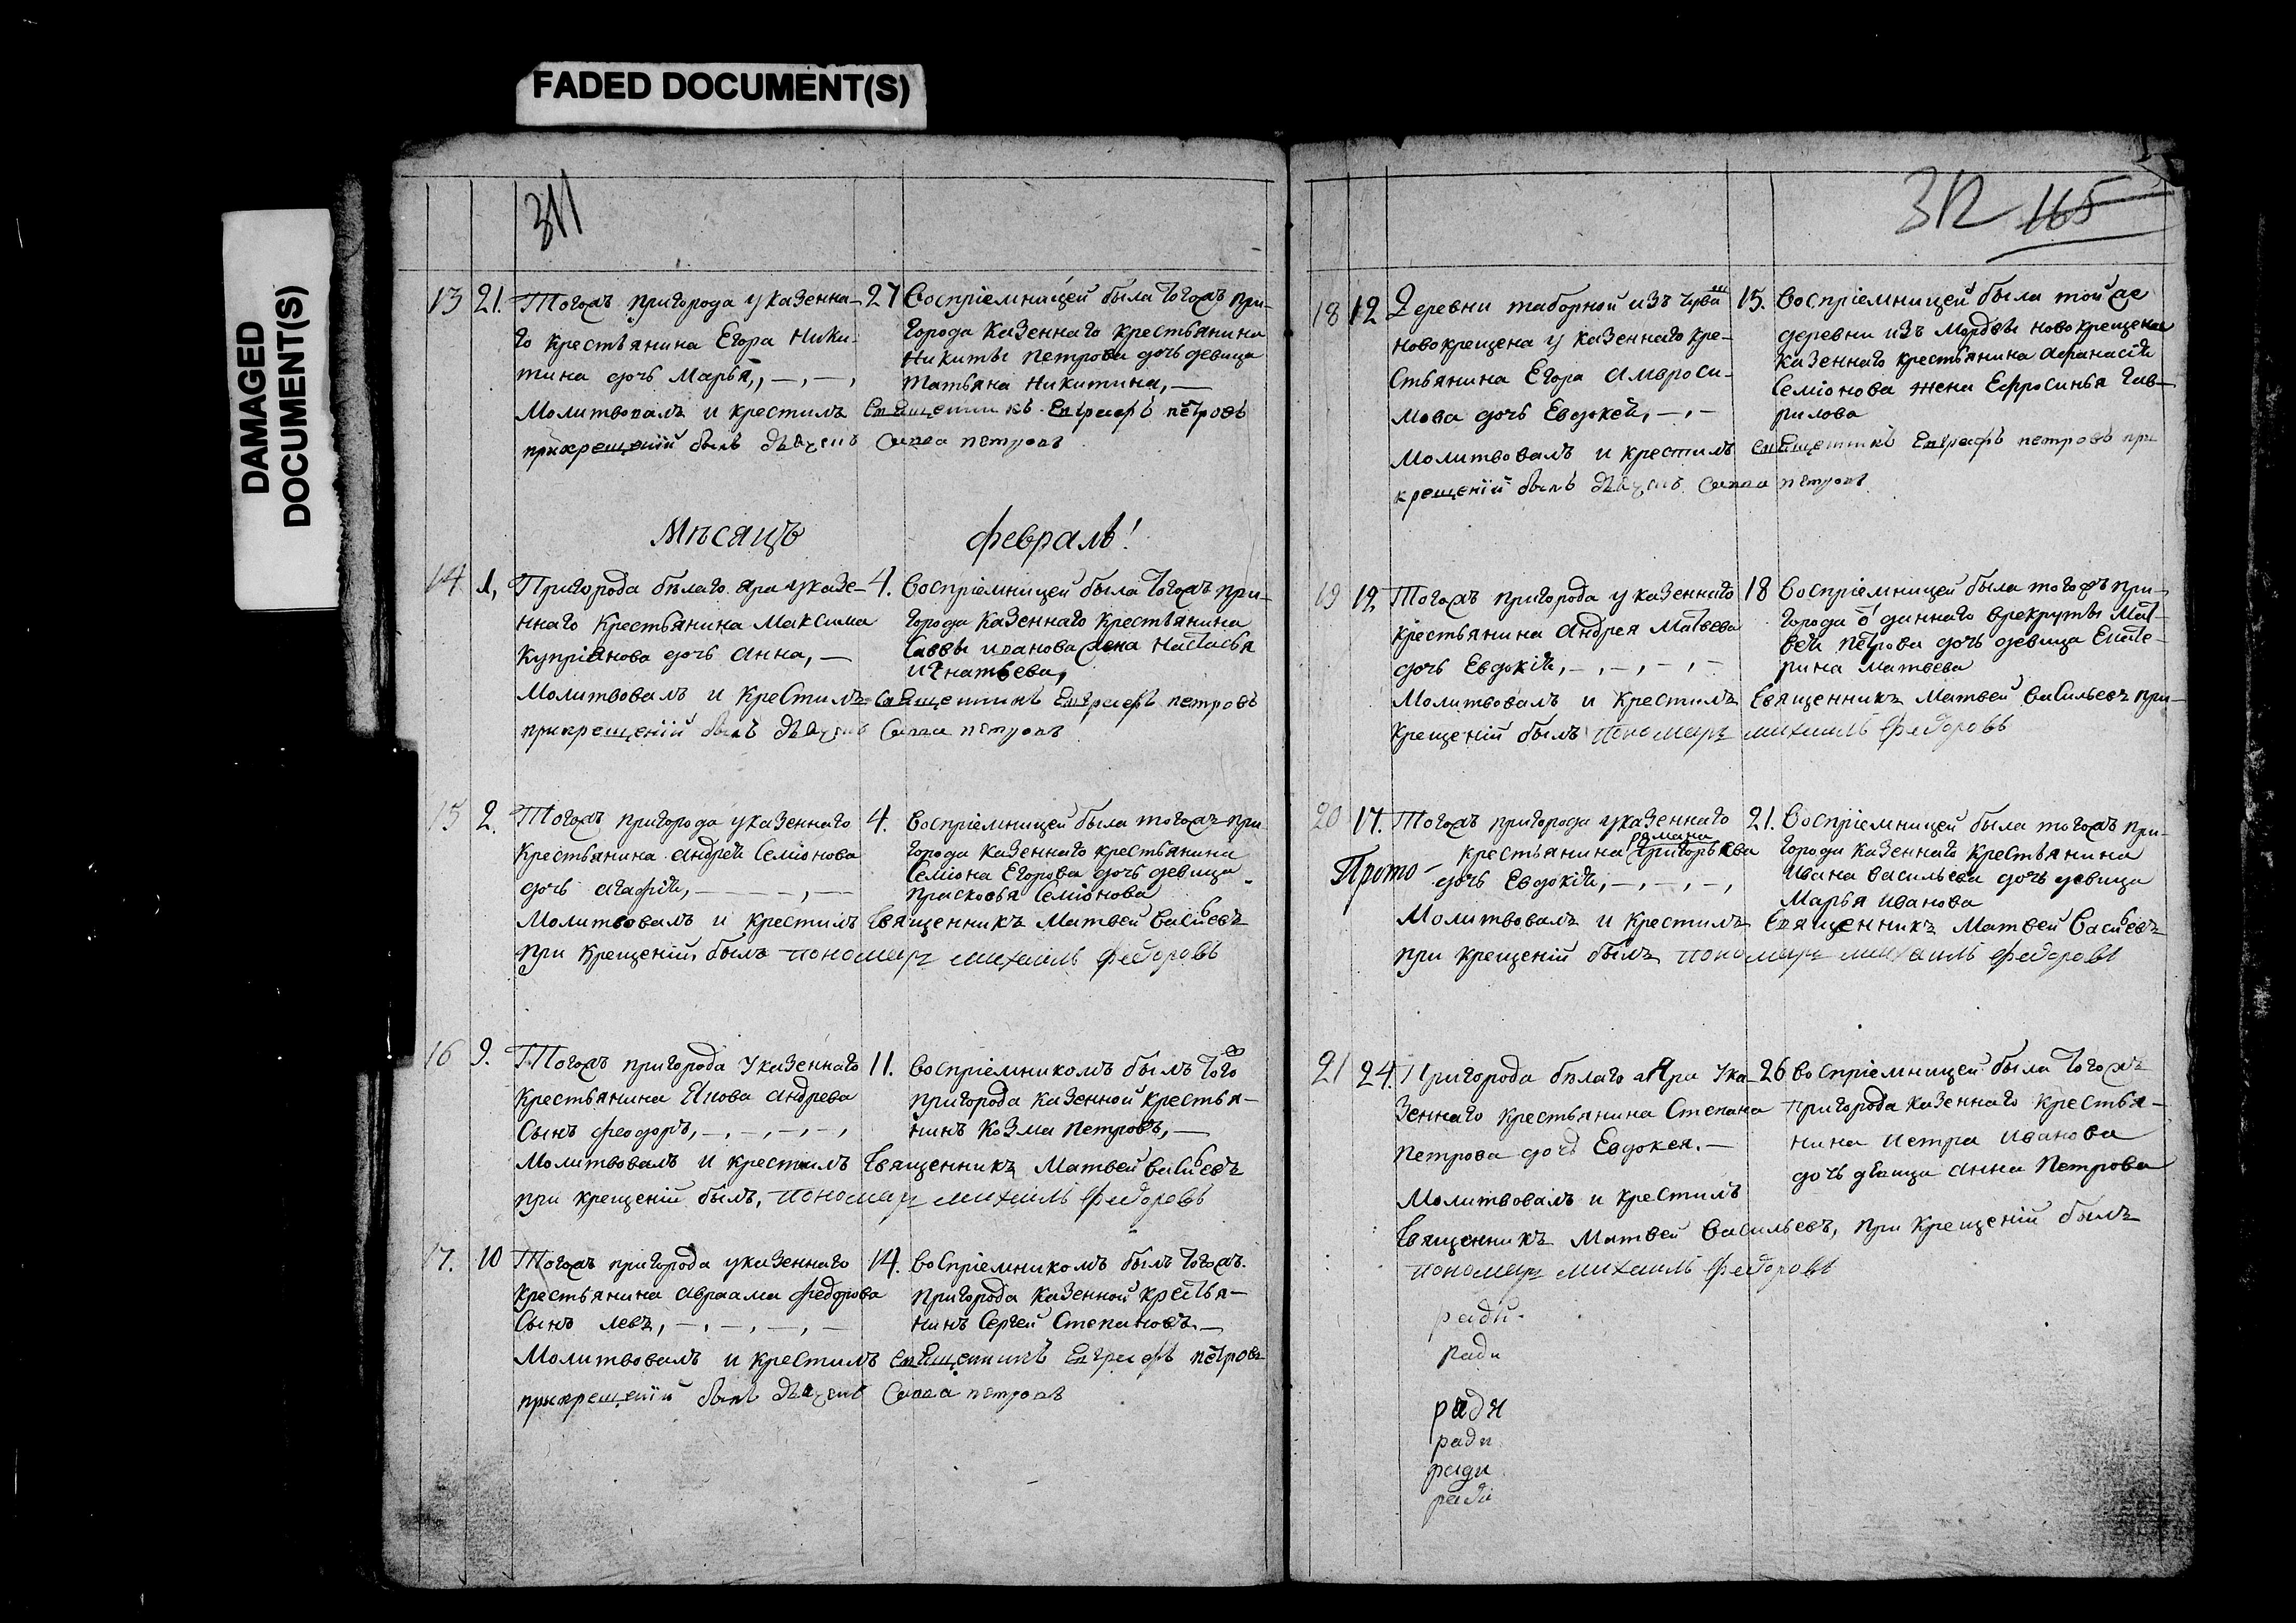 FADED DOCUMENT(S)
DAMAGED
DOCUMENT(S)
311
13 21. Тогожъ пригорода у казенна-
го крестьянина Егора Ники-
тина дочь Марья,
27 Воспріемницей была тогожъ при-
города казеннаго крестьянина
Никиты Петрова дочь девица
Татьяна Никитина,
Молитвовалъ и крестилъ священникъ Евграфъ Петровъ
при крещеніи былъ дьячекъ Савва Петровъ
Мѣсяцъ февраль!
14 1, Пригорода бѣлаго яра у казе-
ннаго Крестьянина Максима
Купріянова дочь Анна,
4. Воспріемницей была тогожъ при-
города казеннаго Крестьянина
Саввы иванова жена Настасья
игнатьева,
Молитвовалъ и Крестилъ священникъ Евграфъ петровъ
при крещеніи былъ дьячекъ Савва петровъ
15 2. Тогожъ пригорода у казеннаго
Крестьянина андрея Семіонова
дочь агафія,
4. Воспріемницей была тогожъ при
города казеннаго крестьянина
Семіона Егорова дочь девица
Прасковья Семіонова
Молитвовалъ и крестилъ Священникъ Матвей Васильевъ
при крещеніи былъ пономарь михаилъ федоровъ
16 9. Тогожъ пригорода у казеннаго
Крестьянина андрева
Сынъ феодоръ,
11. Воспріемникомъ былъ того ж
пригорода казенной крестья-
нинъ козма петровъ,
Молитвовалъ и крестилъ Священникъ Матвей Васильевъ
при крещеніи былъ, пономарь михаилъ федоровъ
17. 10 Тогожъ пригорода у казеннаго
крестьянина авраама федорова
Сынъ левъ,
14. воспріемникомъ былъ тогожъ
пригорода казенной крестья-
нинъ Сергей Степановъ
Молитвовалъ и крестилъ священникъ Евграфъ петровъ
при крещеніи былъ дьячекъ Савва петровъ
312 165
18 12 Деревни таборной изъ чуваш
новокрещена у казеннаго кре-
стьянина Егора Амвроси-
мова дочь Евдокея,
15. Воспріемницей была той же
деревни изъ мордвы новокрещена
казеннаго крестьянина афанасія
Семіонова жена Ефросинья Гав-
рилова
Молитвовалъ и крестилъ священникъ Евграфъ петровъ при
крещеніи былъ дьячекъ Савва петровъ
19 12. Тогожъ пригорода у казеннаго
крестьянина андрея Матвева
дочь Евдокія,
18 Воспріемницей была тогожъ при-
города отданнаго врекруты Мат-
вея Петрова дочь девица Екате-
рина матвева
Молитвовалъ и крестилъ Священникъ Матвей Васильевъ при-
крещеніи былъ пономарь михаилъ федоровъ
20 17. Тогожъ пригорода у казеннаго
романа
крестьянина григорьева
Прото- дочь Евдокія,
21. Воспріемницей была тогожъ при-
города казеннаго крестьянина
ивана васильева дочь девица
Марья иванова
Молитвовалъ и крестилъ Священникъ Матвей Васильевъ
при крещеніи былъ пономарь михаилъ федоровъ
21 24. Пригорода бѣлаго Яра у ка-
зеннаго крестьянина Степана
Петрова дочь Евдокея.
26 воспріемницей была тогожъ
пригорода казеннаго крестья-
нина петра иванова
дочь двица анна Петрова
Молитвовалъ и крестилъ
Священникъ Матвей Васильевъ, при крещеніи былъ
пономарь михаилъ федоровъ
ради
ради
ради
ради
ради
ради